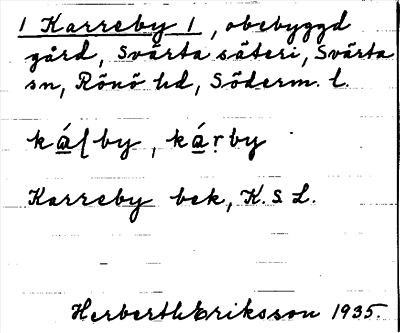 1 Karreby 1, obebyggd
gård, Svärta säteri, Svärta
sn, Rönö hd, Söderm. l.
káɭby, káṛby
Karreby bek, K.S.L.
Herberth Eriksson 1935.